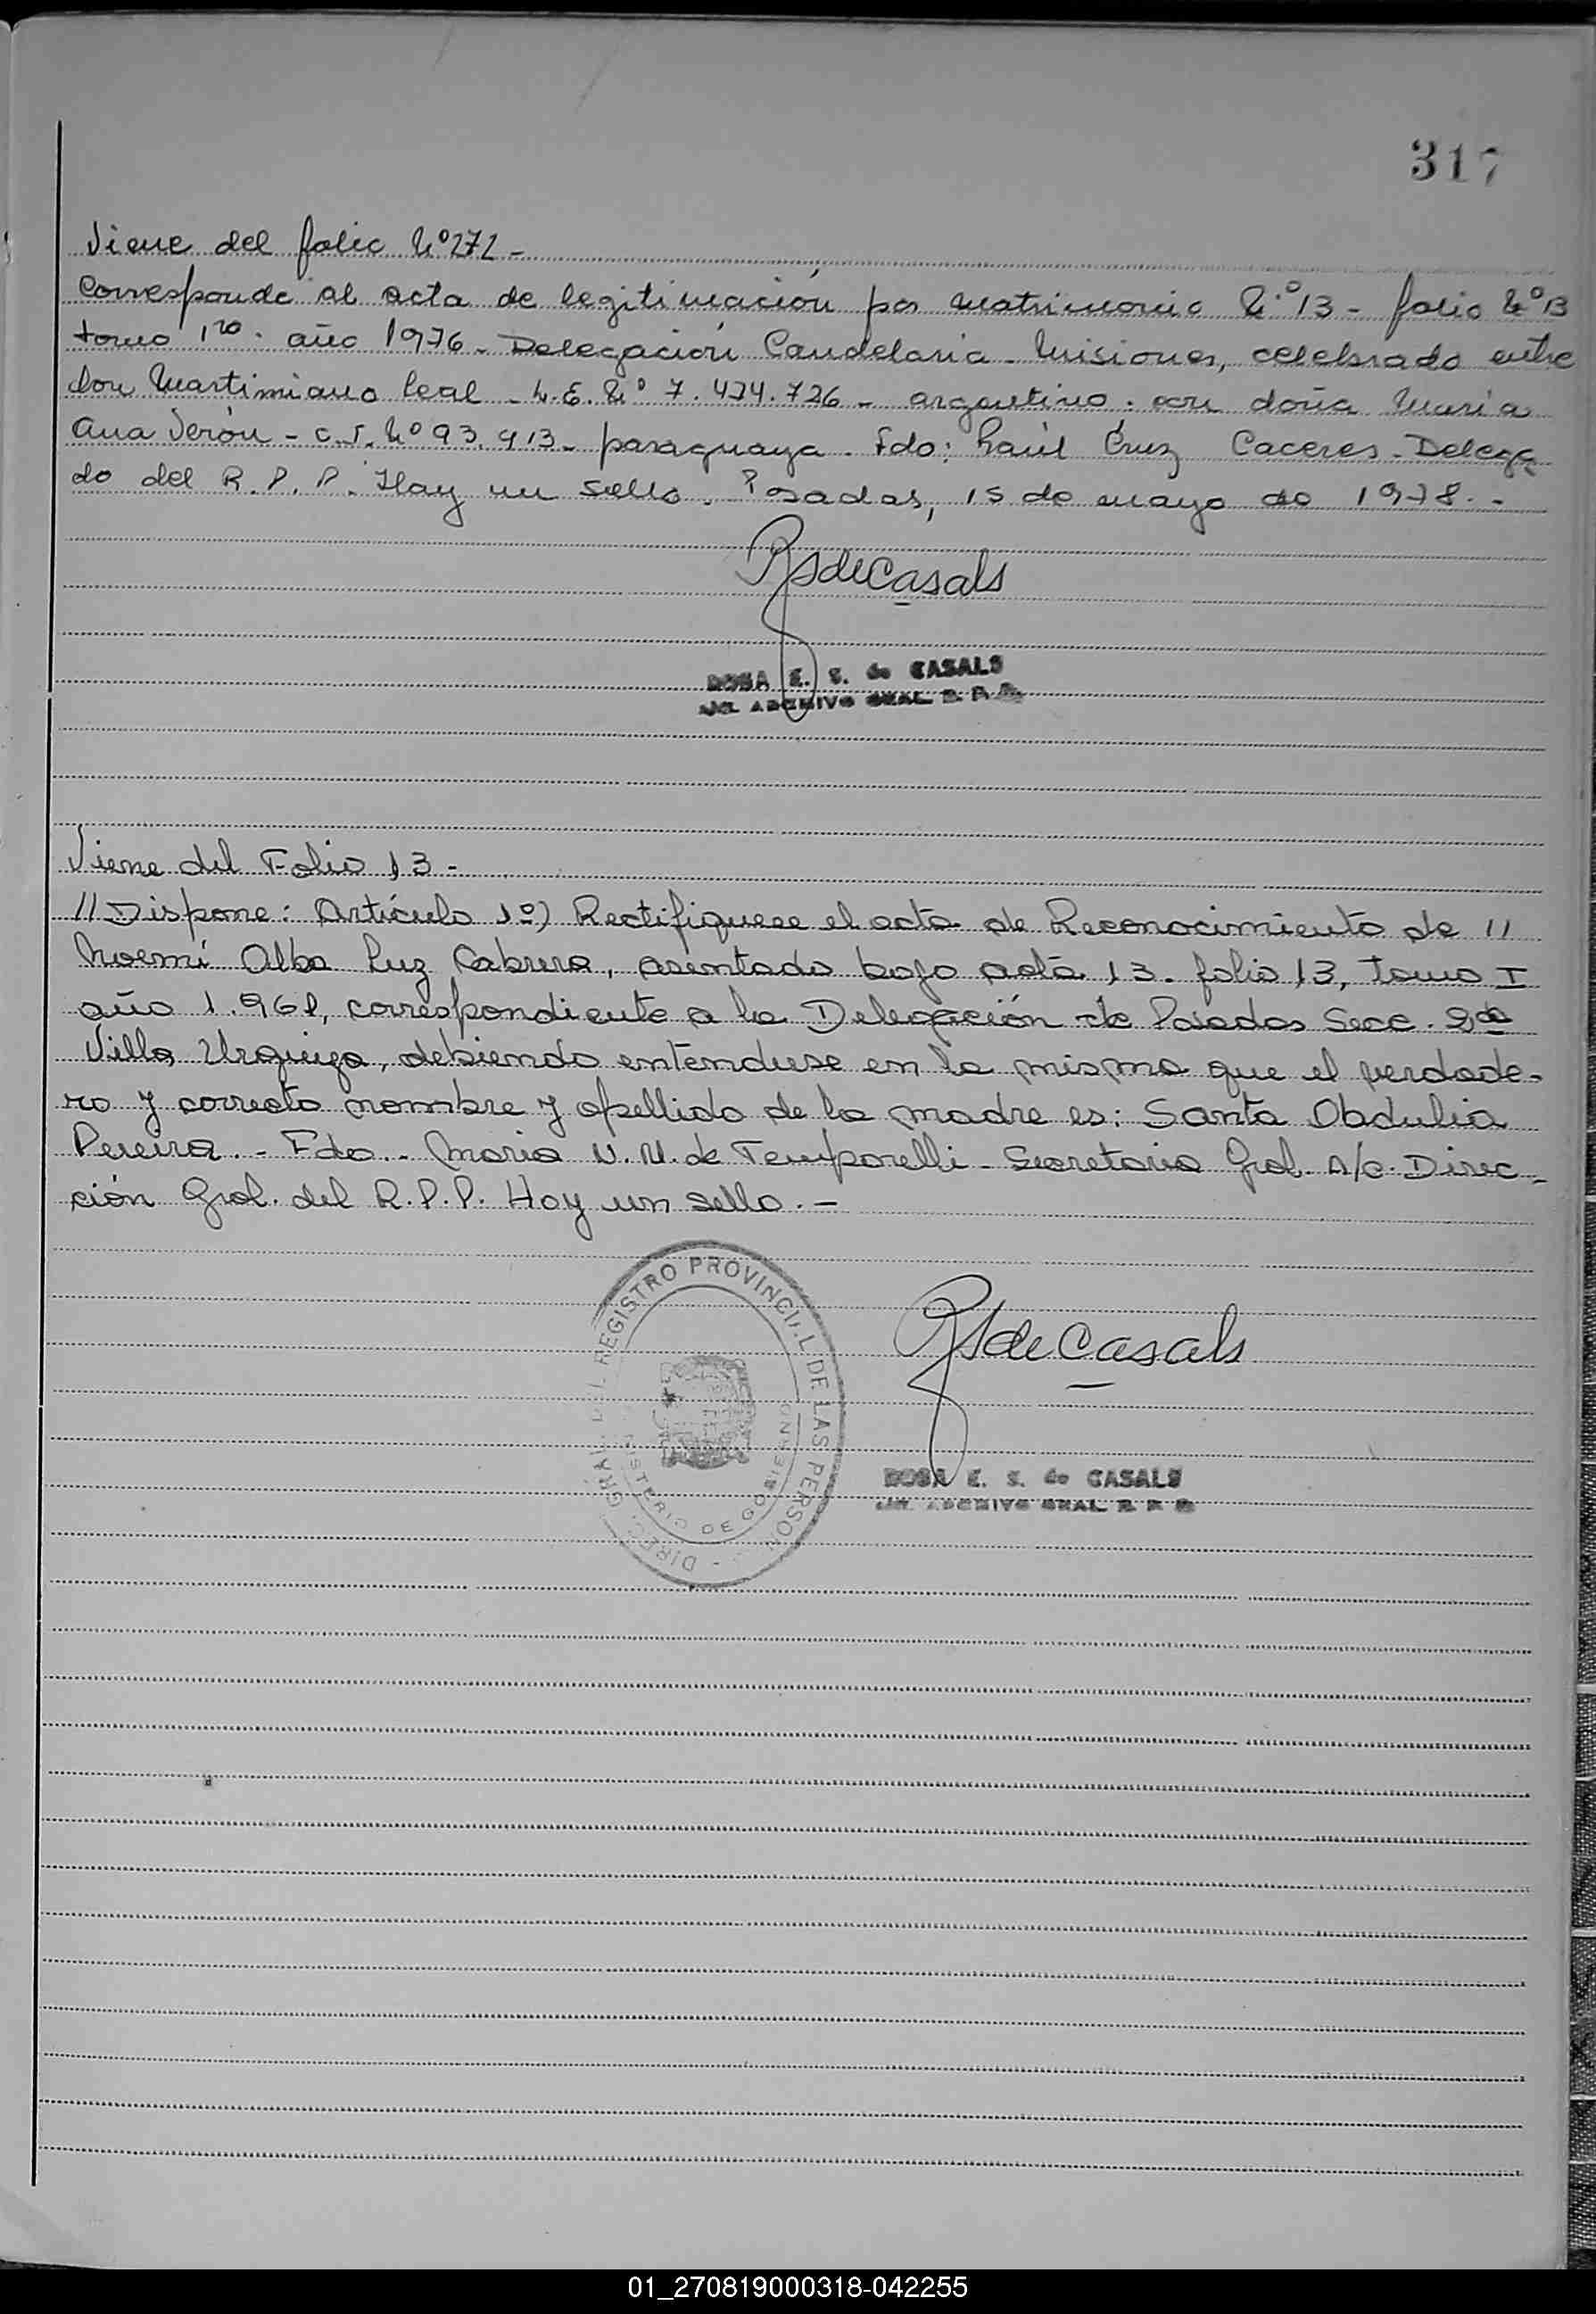 317
Viene del folio Nº 272 -
Corresponde al acta de legitimación por matrimonio Nº 13 - folio Nº 13
tomo 1ro. año 1976 - Delegación Candelaria - Misiones, celebrado entre
don Martimiano Leal - L.E. Nº 7.474.726 - argentino; con doña María
Ana Verón - C.I. Nº 93.913 - paraguaya. Fdo: Raúl Cruz Caceres - Delega
do del R.P.P. Hay un sello. Posadas, 15 de mayo de 1978. -
RSdeCasals
ROSA E. S. de CASALS
ARCHIVO GRAL. R. P. P.
Viene del Folio 13 -
// Dispone: Artículo 1º) Rectifiquese el acta de Reconocimiento de //
Noemí Alba Luz Cabrera, asentada bajo acta 13. folio 13, tomo I
año 1.961, correspondiente a la Delegación de Posadas Secc. 2da
Villa Urquiza, debiendo entenderse en la misma que el verdade-
ro y correcto nombre y apellido de la madre es: Santa Obdulia
Pereira. - Fdo. - Maria N. N. de Temporelli - Secretaria Gral. A/c. Direc-
ción Gral. del R.P.P. Hay un sello. -
DIREC. GRAL. DEL REGISTRO PROVINCI L DE LAS PERSON
MINISTERIO DE GOBIERNO
RSdeCasals
ROSA E. S. de CASALS
ARCHIVO GRAL. R. P. P.
01_270819000318-042255